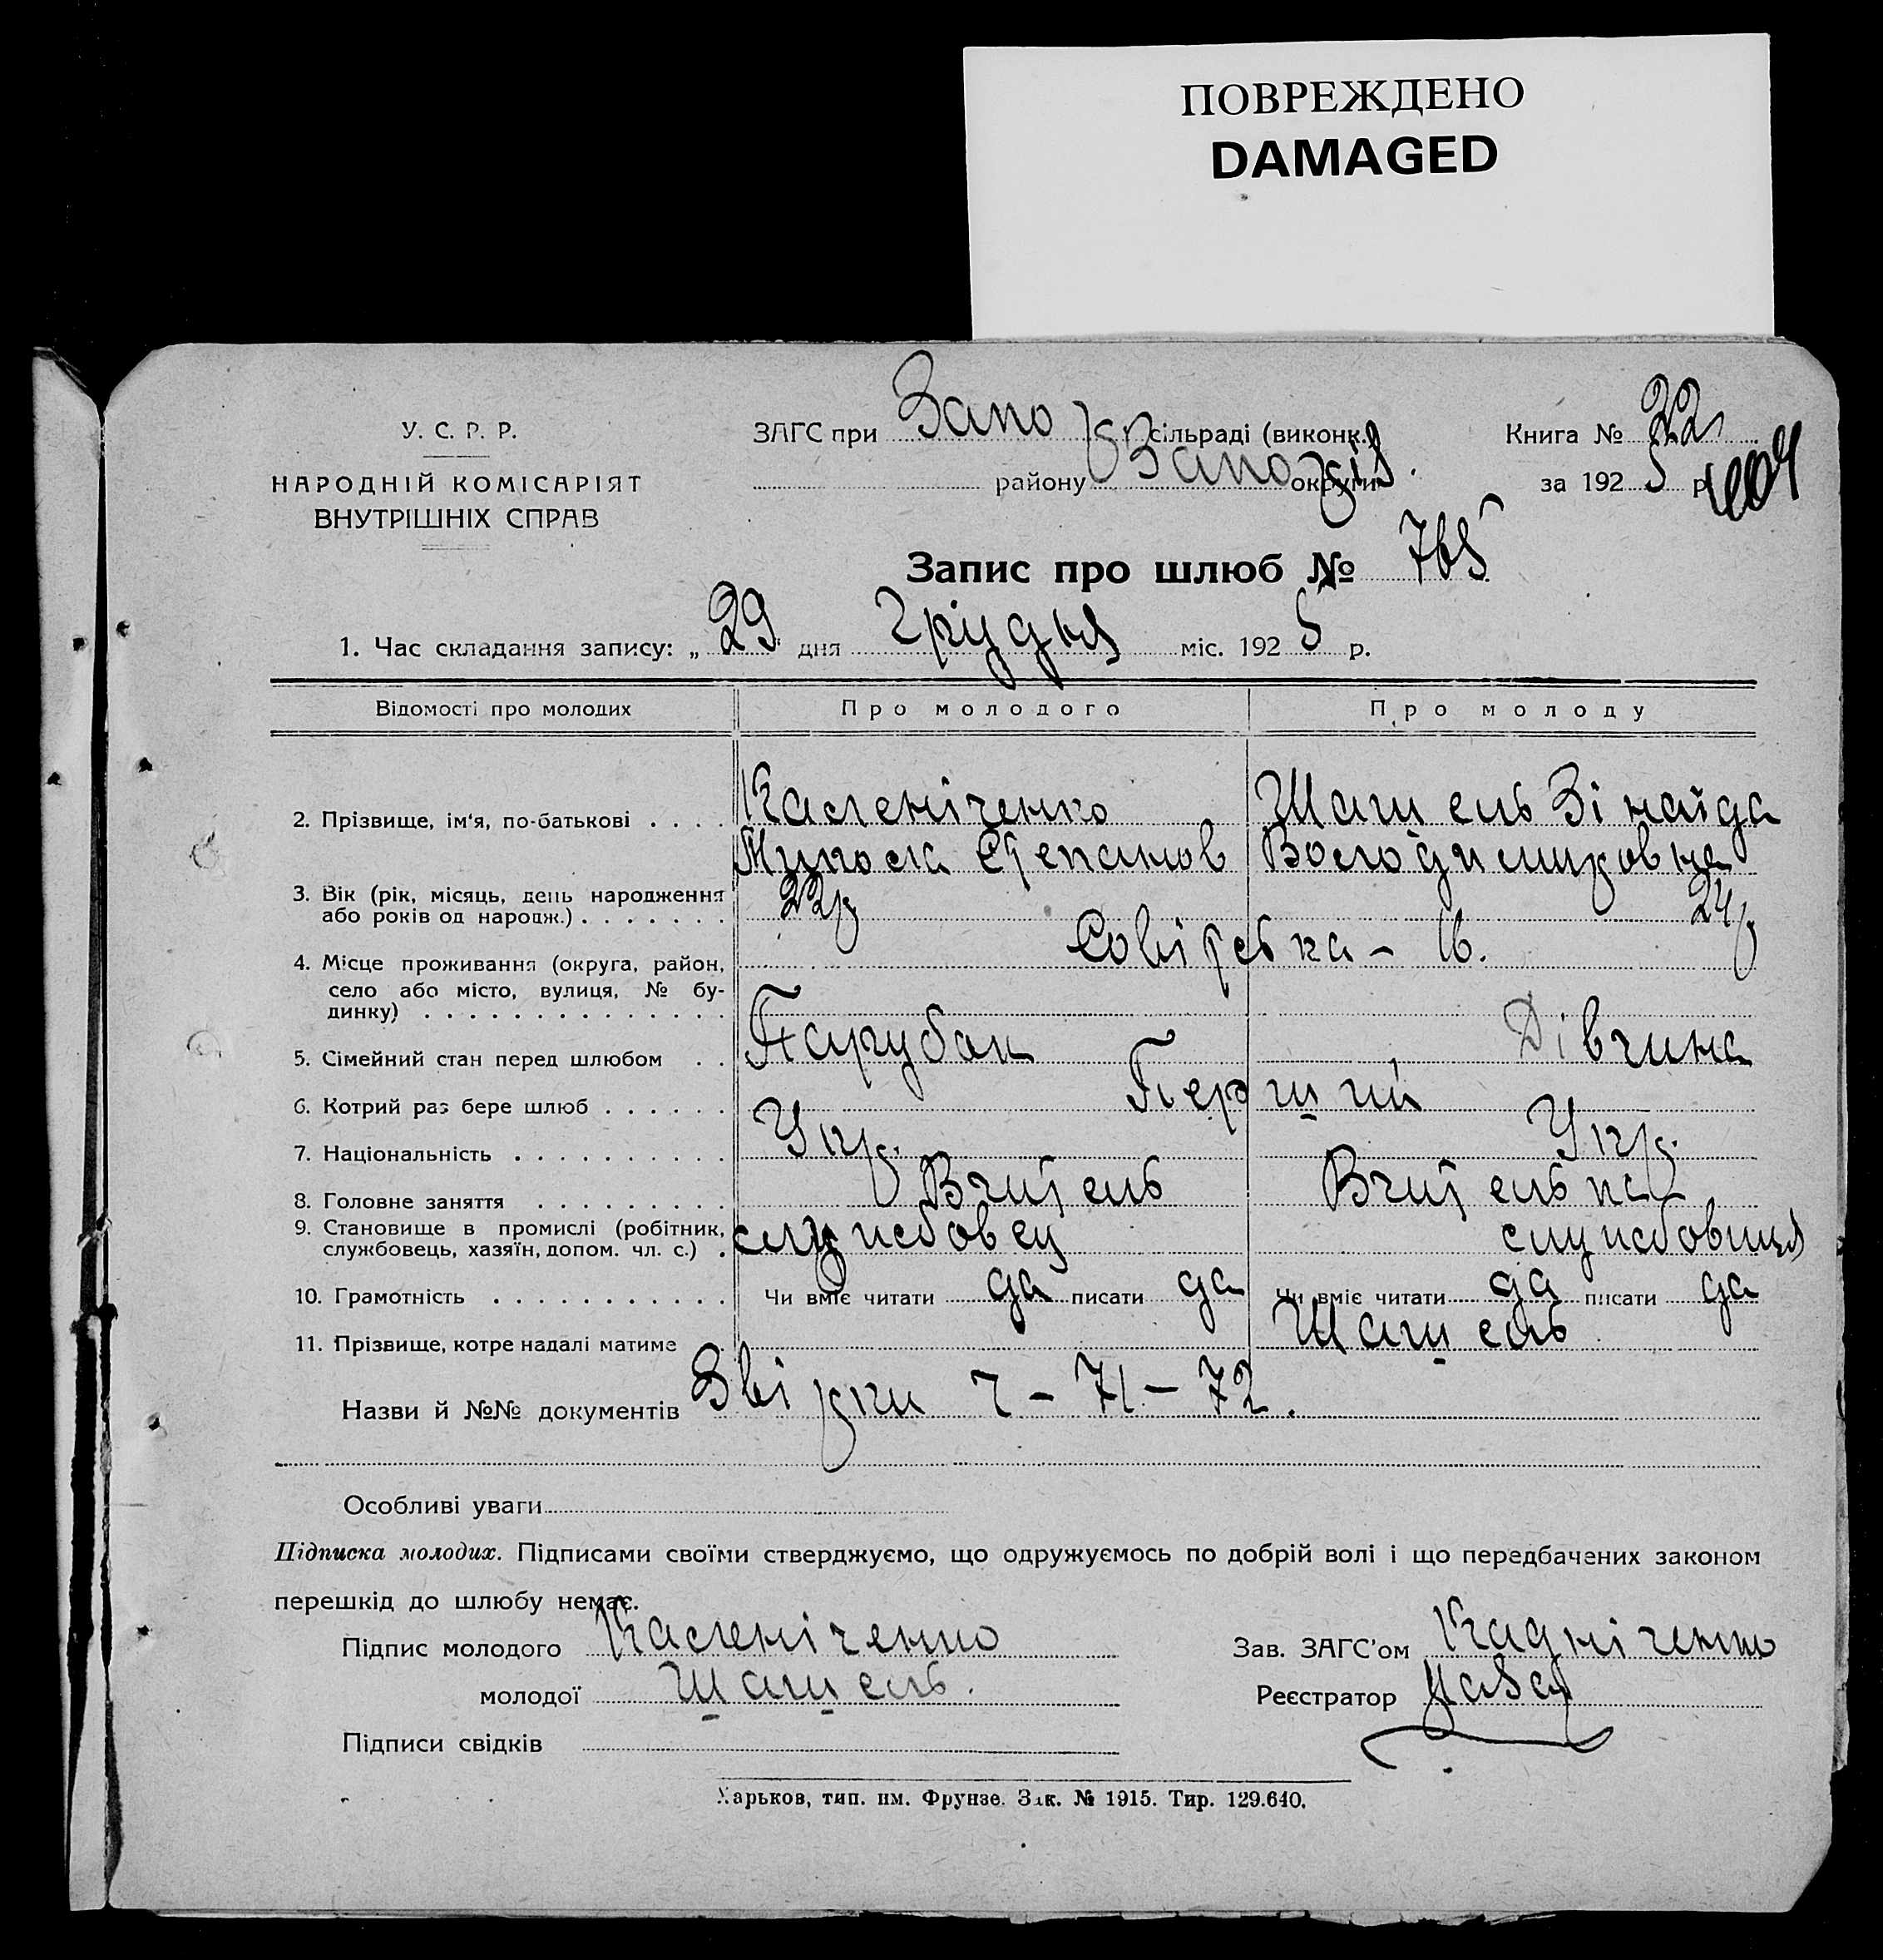 ПОВРЕЖДЕНО
DAMAGED
У. С. Р. Р.
НАРОДНІЙ КОМІСАРІЯТ
ВНУТРІШНІХ СПРАВ
ЗАГС при Запо сільраді (виконк.)
району Запо округи
Книга № 22
за 1925 р.
Запис про шлюб № 765
1. Час складання запису: „29" дня грудня міс. 1925 р.
Відомості про молодих Про молодого Про молоду
2. Прізвище, ім'я, по-батькові . . . . Каленіченко Шашель Зінаїда
Микола Степанов Володимировна
3. Вік (рік, місяць, день народження
або років од народж.) . . . . . . . 22р 24р
4. Місце проживання (округа, район, Совітська – 16.
село або місто, вулиця, № бу-
динку) . . . . . . . . . . . . . . .
5. Сімейний стан перед шлюбом . . Парубок Дівчина
6. Котрий раз бере шлюб . . . . . . Перший
7. Національність . . . . . . . . . . Укр. Укр.
8. Головне заняття . . . . . . . . . Вчитель Вчителька
9. Становище в промислі (робітник,
службовець, хазяїн, допом. чл. с.) . службовец службовиця
10. Грамотність . . . . . . . . . . . Чи вміє читати да писати да Чи вміє читати да писати да
11. Прізвище, котре надалі матиме Шашель
Назви й №№ документів Звірки ч – 71 – 72.
Особливі уваги
Підписка молодих. Підписами своїми стверджуємо, що одружуємось по добрій волі і що передбачених законом
перешкід до шлюбу немає.
Підпис молодого Каленіченко
молодої Шашель.
Підписи свідків
Зав. ЗАГС'ом Кадніченко
Реєстратор
Харьков, тип. им. Фрунзе. Зак. № 1915. Тир. 129.640.